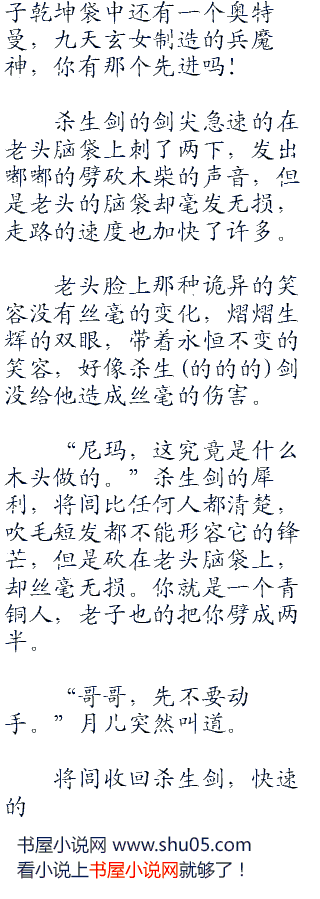 子乾坤袋中还有一个奥特
曼，九天玄女制造的兵魔
神，你有那个先进吗！
杀生剑的剑尖急速的在
老头脑袋上刺了两下，发出
嘟嘟的劈砍木柴的声音，但
是老头的脑袋却毫发无损，
走路的速度也加快了许多。
老头脸上那种诡异的笑
容没有丝毫的变化，熠熠生
辉的双眼，带着永恒不变的
笑容，好像杀生(的的的)剑
没给他造成丝毫的伤害。
“尼玛，这究竟是什么
木头做的。”杀生剑的犀
利，将闾比任何人都清楚，
吹毛短发都不能形容它的锋
芒，但是砍在老头脑袋上，
却丝毫无损。你就是一个青
铜人，老子也的把你劈成两
半。
“哥哥，先不要动
手。”月儿突然叫道。
将闾收回杀生剑，快速
的
书屋小说网 www.shu05.com
看小说上书屋小说网就够了！